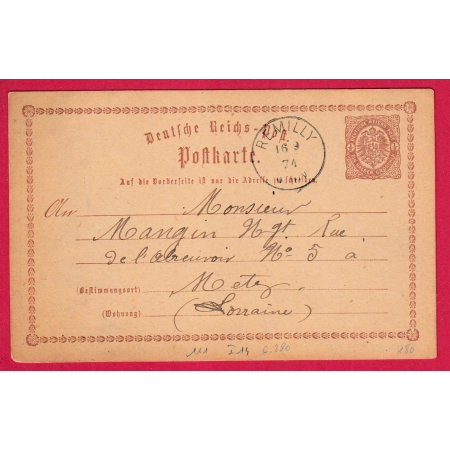 Deutsche Reichs-Post.
Postkarte.
REMILLY
16 9
74
Auf die Vorderseite ist nur die Adresse zu schreiben.
An Monsieur
Mangin Ngt Rue
de l'abreuvoir No 5 à
(Bestimmungsort) Metz
(Wohnung) (Lorraine)
180